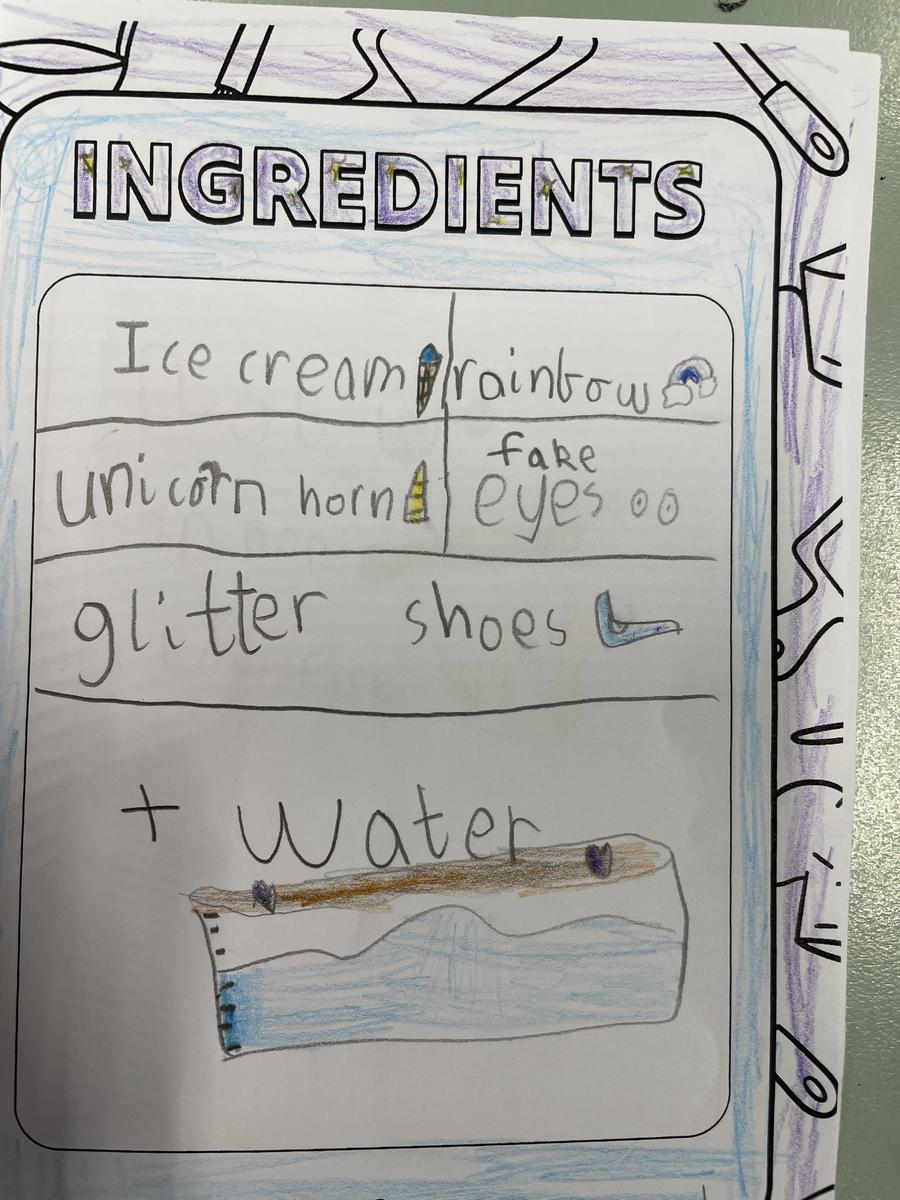 INGREDIENTS
Ice cream
rainbow
unicorn horn
fake
eyes
glitter shoes
+ Water